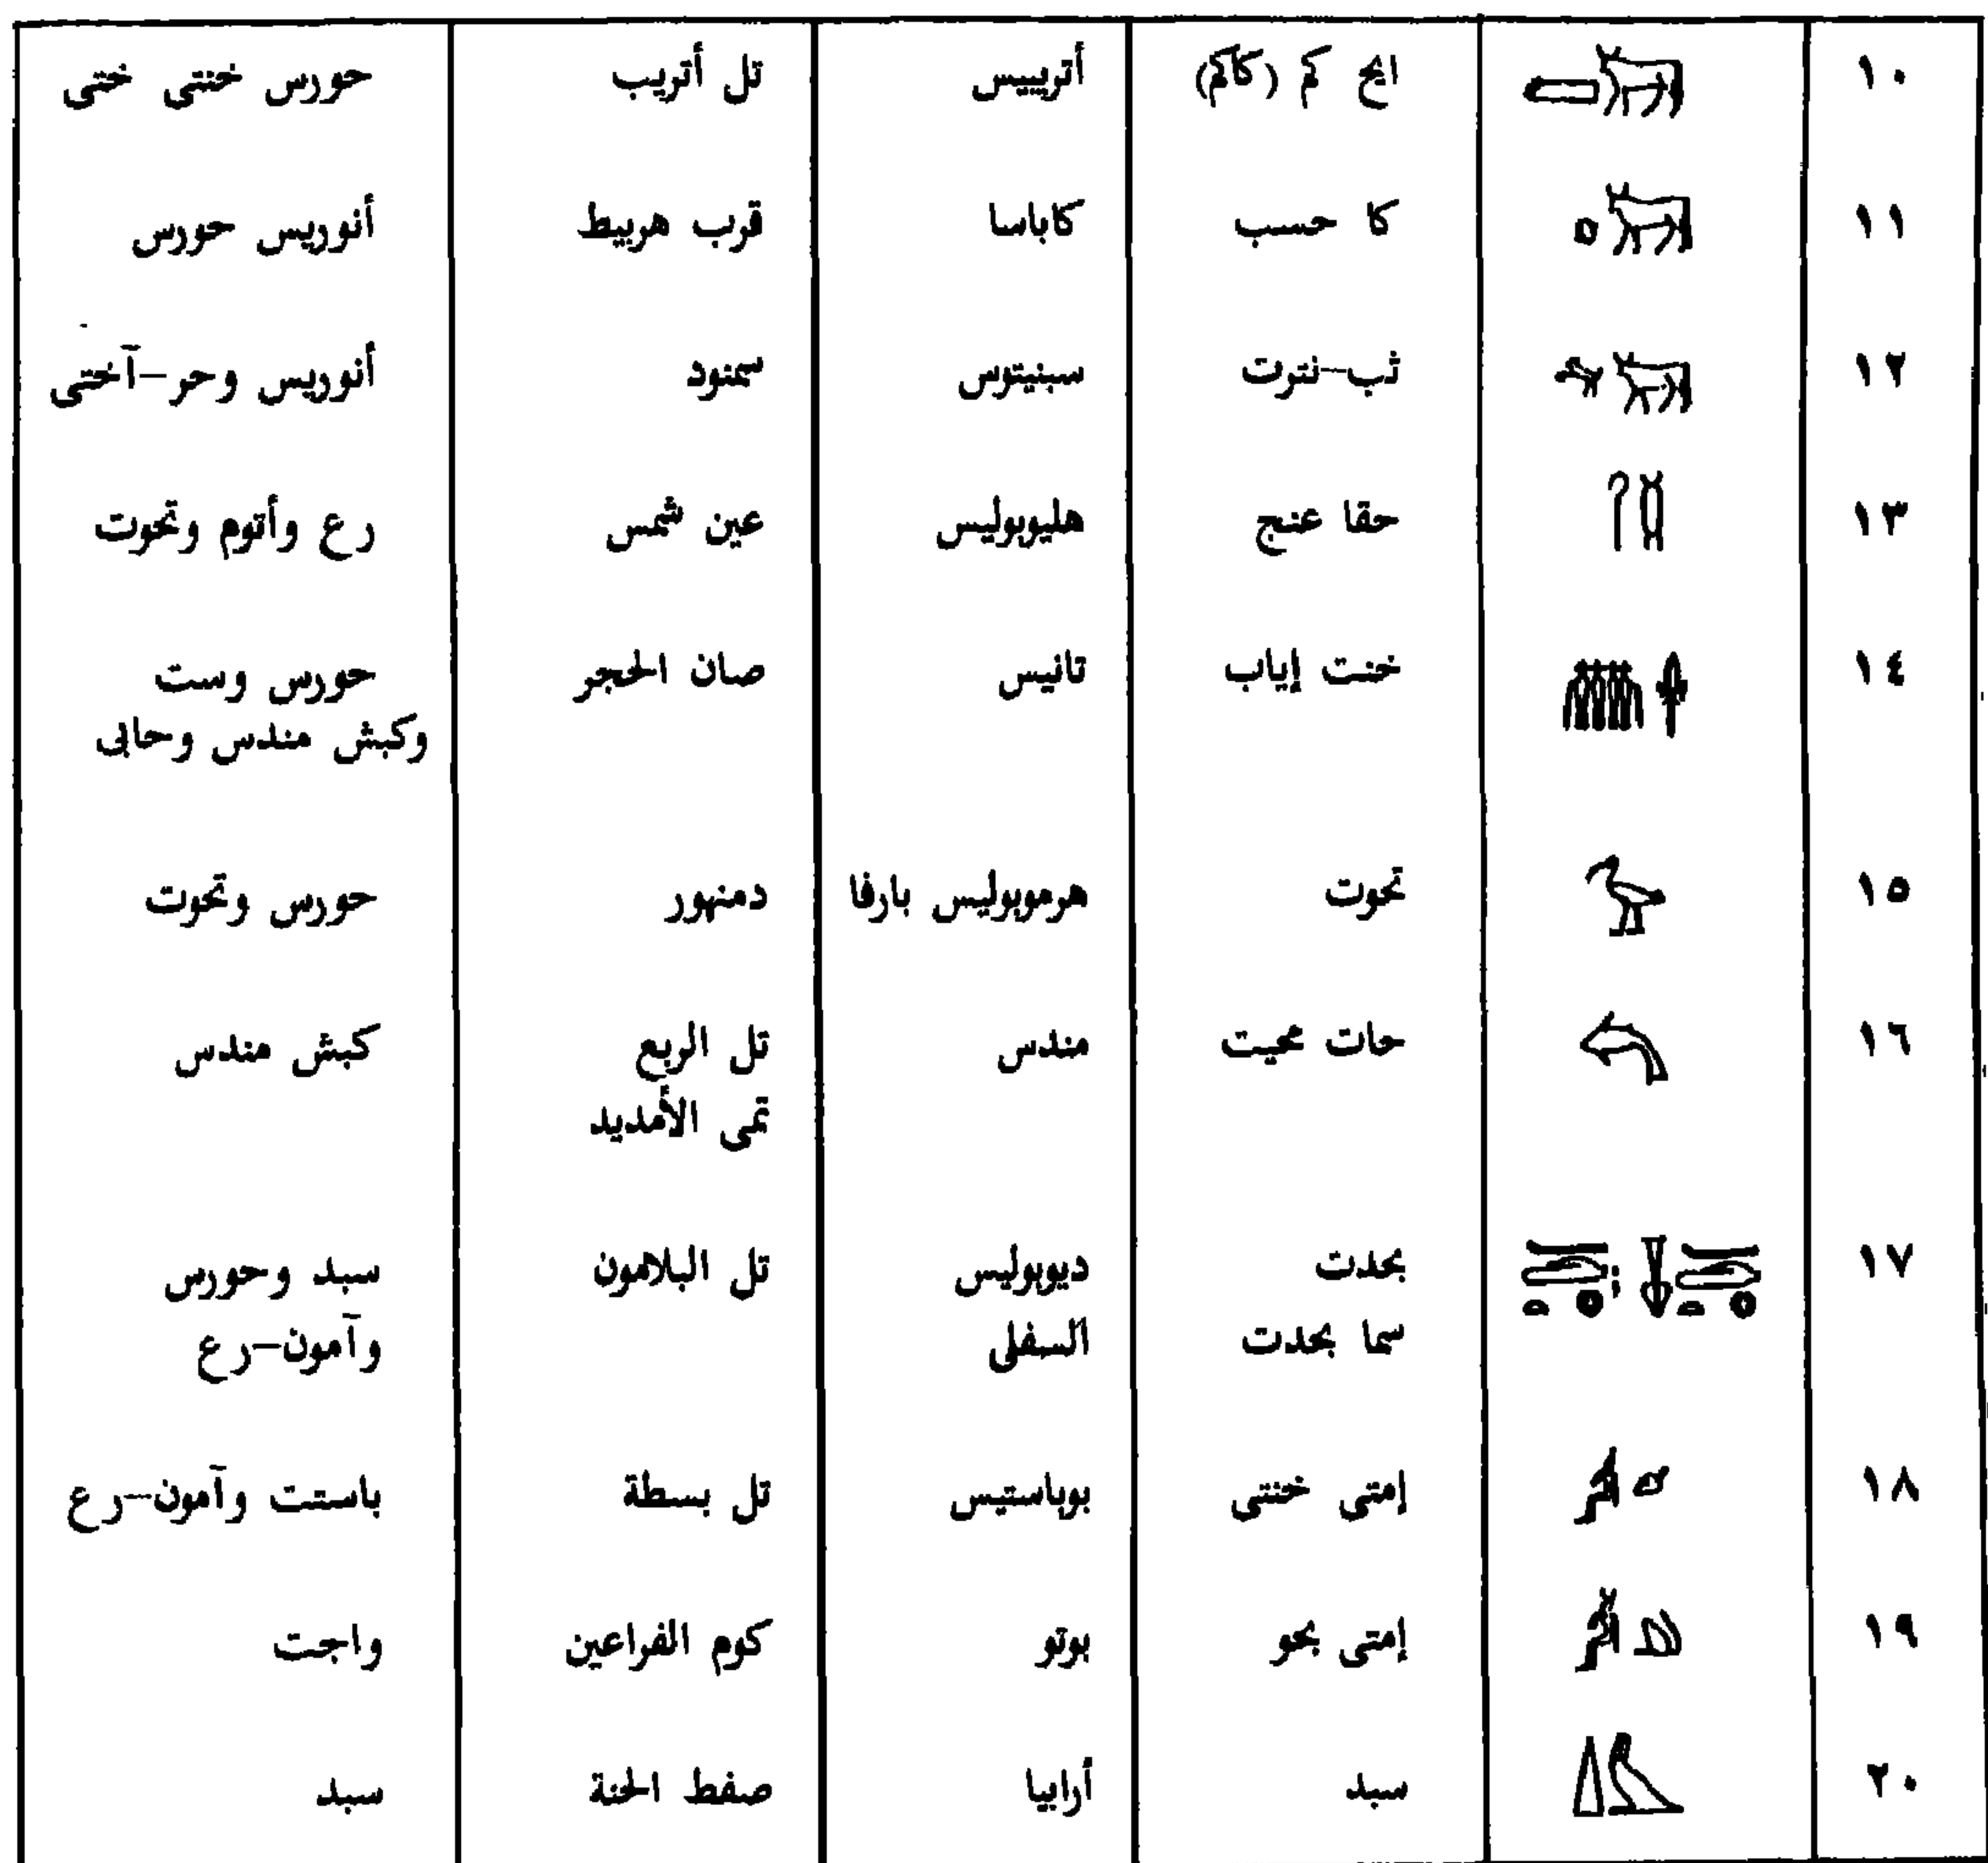 ١٠ ايح كم (كاكم) أتريبيس تل أتريب حورس خنتى ختى
١١ كا حسب كاباسا قرب هربيط أنوريس حورس
١٢ ثب-نترت سبنيتوس سمنود أنوريس وحر-آختى
١٣ حقا عنج هليوبوليس عين شمس رع وأتوم وتحوت
١٤ خنت إياب تانيس صان الحجر حورس وست
وكبش مندس وحابى
١٥ تحوت هرموبوليس بارفا دمنهور حورس وتحوت
١٦ حات محيت مندس تل الربع كبش مندس
تمى الأمديد
١٧ بحدت ديوبوليس تل البلامون سبد وحورس
سما بحدت السفلى وآمون-رع
١٨ إمتى خنتى بوباستيس تل بسطة باستت وآمون-رع
١٩ إمتى بحو بوتو كوم الفراعين واجت
٢٠ سبد أرابيا صفط الحنة سبد